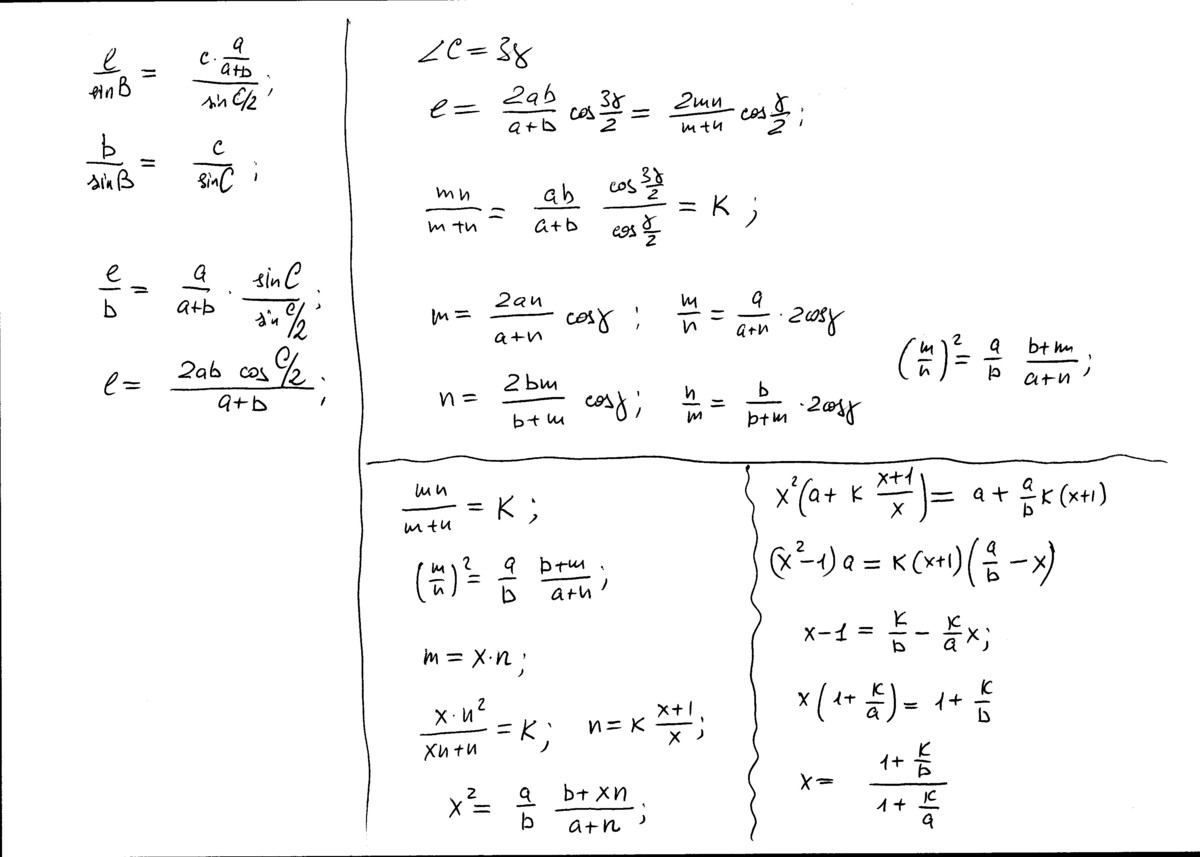 ℓ/sinB = (c · a/(a+b))/(sin C/2);
b/sinB = c/sinC;
ℓ/b = a/(a+b) · sinC/(sin C/2);
ℓ = (2ab cos C/2)/(a+b);
∠C = 3γ
ℓ = 2ab/(a+b) cos 3γ/2 = 2mn/(m+n) cos γ/2;
mn/(m+n) = ab/(a+b) (cos 3γ/2)/(cos γ/2) = K;
m = 2an/(a+n) cosγ; m/n = a/(a+n) · 2cosγ
n = 2bm/(b+m) cosγ; n/m = b/(b+m) · 2cosγ
(m/n)² = a/b (b+m)/(a+n);
mn/(m+n) = K;
(m/n)² = a/b (b+m)/(a+n);
m = x·n;
(x·n²)/(xn+n) = K; n = K (x+1)/x;
x² = a/b (b+xn)/(a+n);
x²(a + K (x+1)/x) = a + a/b K(x+1)
(x²-1)a = K(x+1)(a/b - x)
x-1 = K/b - K/a x;
x(1 + K/a) = 1 + K/b
x = (1 + K/b)/(1 + K/a)